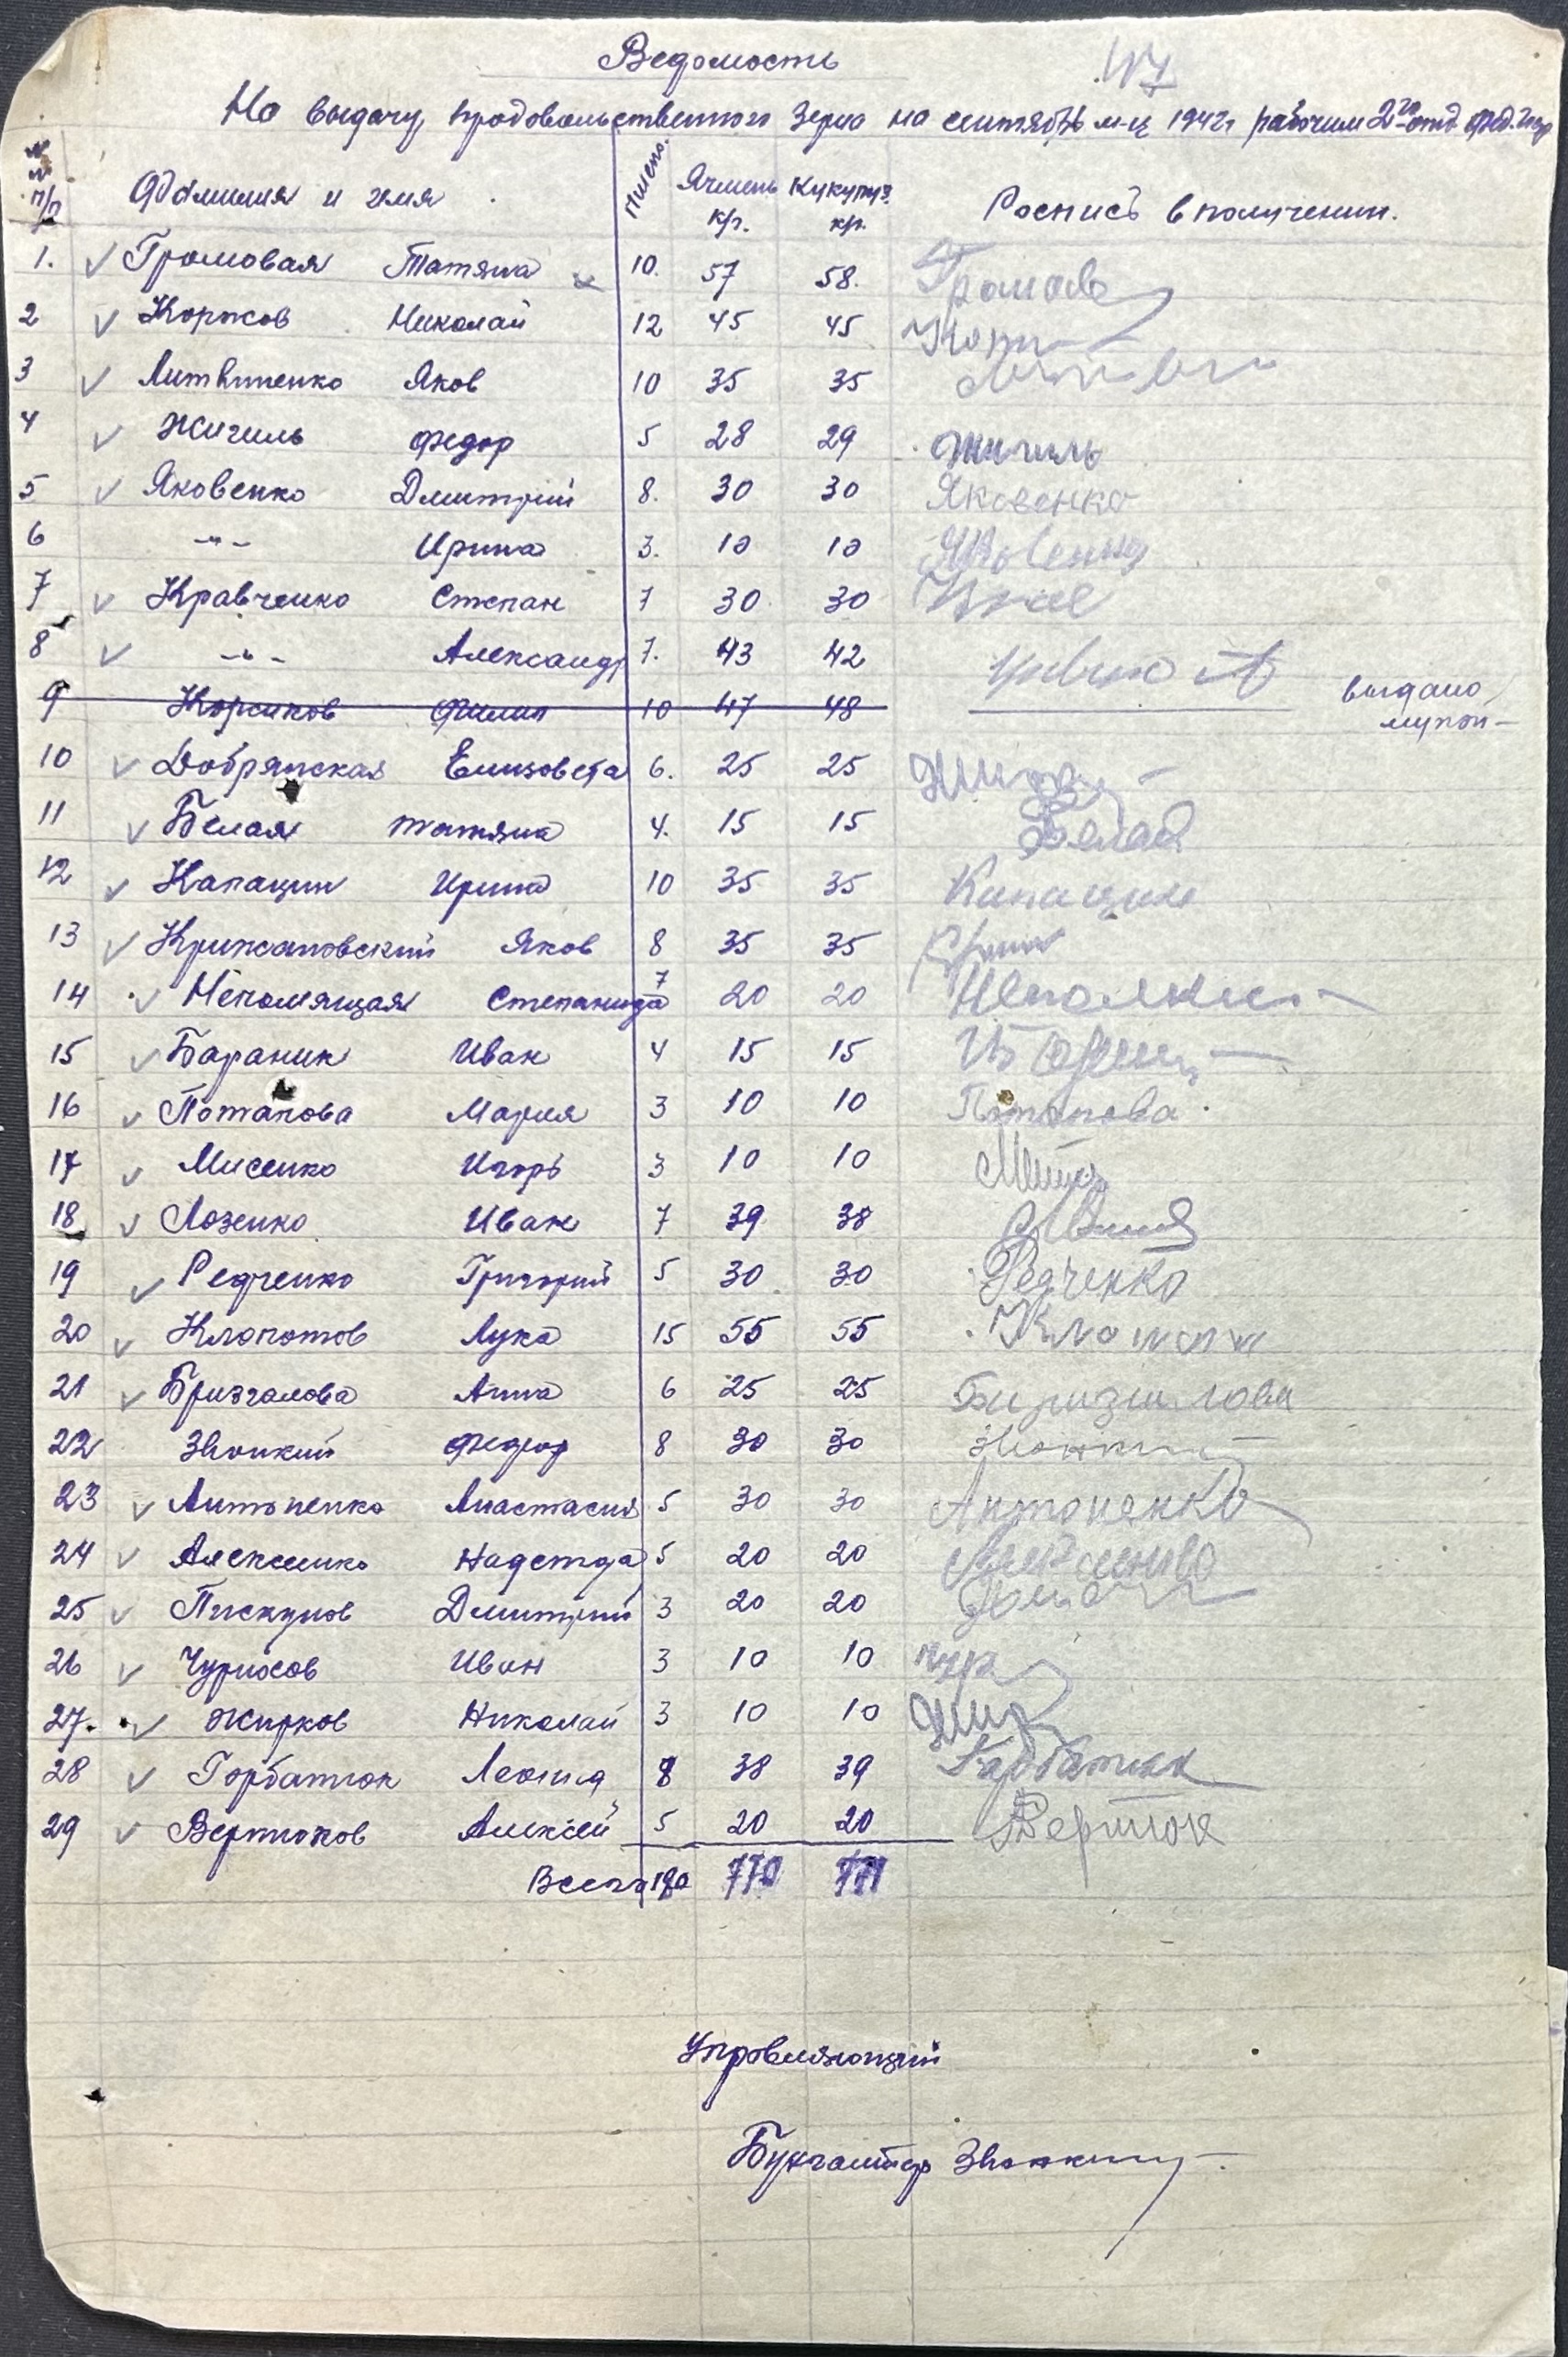 Ведомость
117
На выдачу продовольственного зерна на сентябрь м-ц 1942г рабочим 2го отд.
№№ п/п Фамилия и имя Ячмень кгр. Кукуруз. кгр. Роспись в получении.
1. Громовая Татяна 10. 57 58. Громова
2 Коржов Николай 12 45 45
3 Литвиненко Яков 10 35 35
4 Жигиль Федор 5 28 29 Жигиль
5 Яковенко Дмитрий 8. 30 30 Яковенко
6 -"- Ирина 3. 10 10 Яковенко
7 Кравченко Степан 7 30 30
8 -"- Александр 7. 43 42
9 Корсиков Филип 10 47 48 выдано
мукой
10 Добрянская Елизовета 6. 25 25
11 Белая татяна 4. 15 15 Белая
12 Капацин Ирина 10 35 35 Капацин
13 Крижановский Яков 8 35 35
14 Непомящая Степанида 7 20 20
15 Бараник Иван 4 15 15
16 Потапова Мария 3 10 10 Потапова
17 Мисенко Игорь 3 10 10
18 Лозенко Иван 7 39 38
19 Редченко Григорий 5 30 30 Редченко
20 Клопотов Лука 15 55 55
21 Бризгалова Анна 6 25 25
22 Звонкий Федор 8 30 30 Звонкий
23 Антоненко Анастасия 5 30 30 Антоненко
24 Алексенко Надежда 5 20 20
25 Пискунов Дмитрий 3 20 20
26 Чурихов Иван 3 10 10 Чур
27. Жирков Николай 3 10 10 Жир
28 Горбатюк Леонид 8 38 39 Горбатюк
29 Вертюков Алексей 5 20 20
Всего 190 770 771
Управляющий
Бухгалтер Звонкий